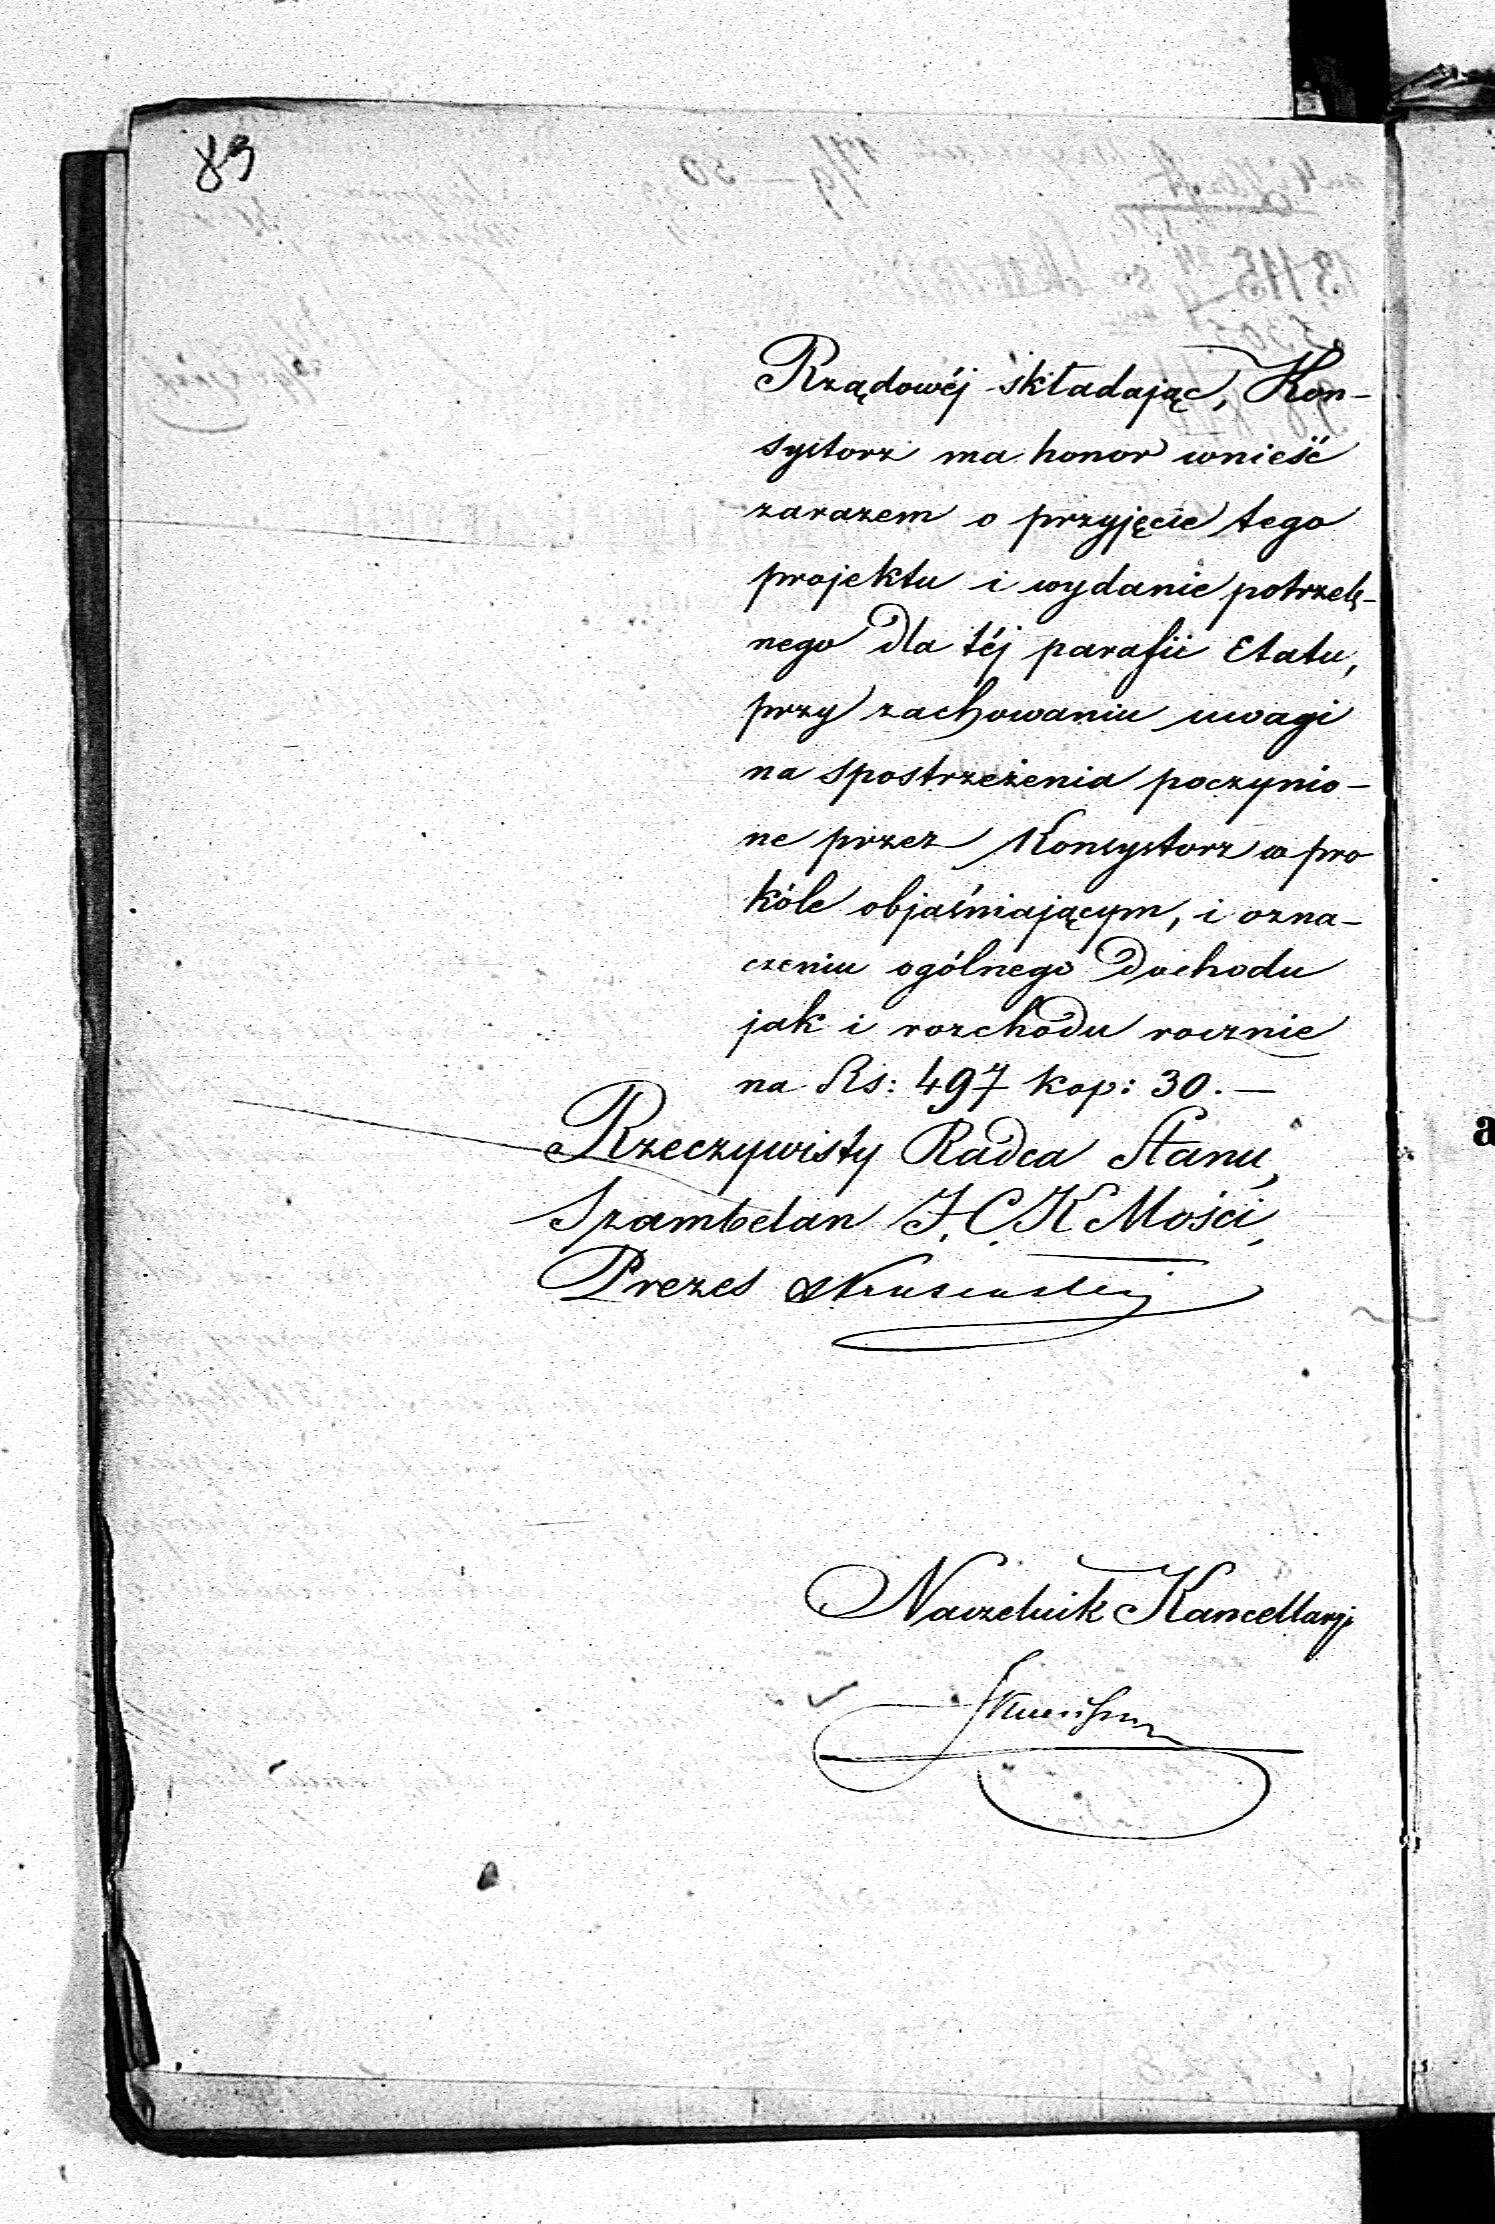 83
Rządowéj składając, Kon-
systorz ma honor wnieść
zarazem o przyjęcie tego
projektu i wydanie potrzeb-
nego dla téj parafii Etatu,
przy zachowaniu uwagi
na spostrzeżenia poczynio-
ne przez Konsystorz w pro
kóle objaśniającym, i ozna-
czeniu ogólnego Dochodu
jak i rozchodu rocznie
na Rs: 497 kop: 30. —
Rzeczywisty Radca Stanu,
Szambelan J. C. K Mości,
Prezes
Naczelnik Kancellarji
a